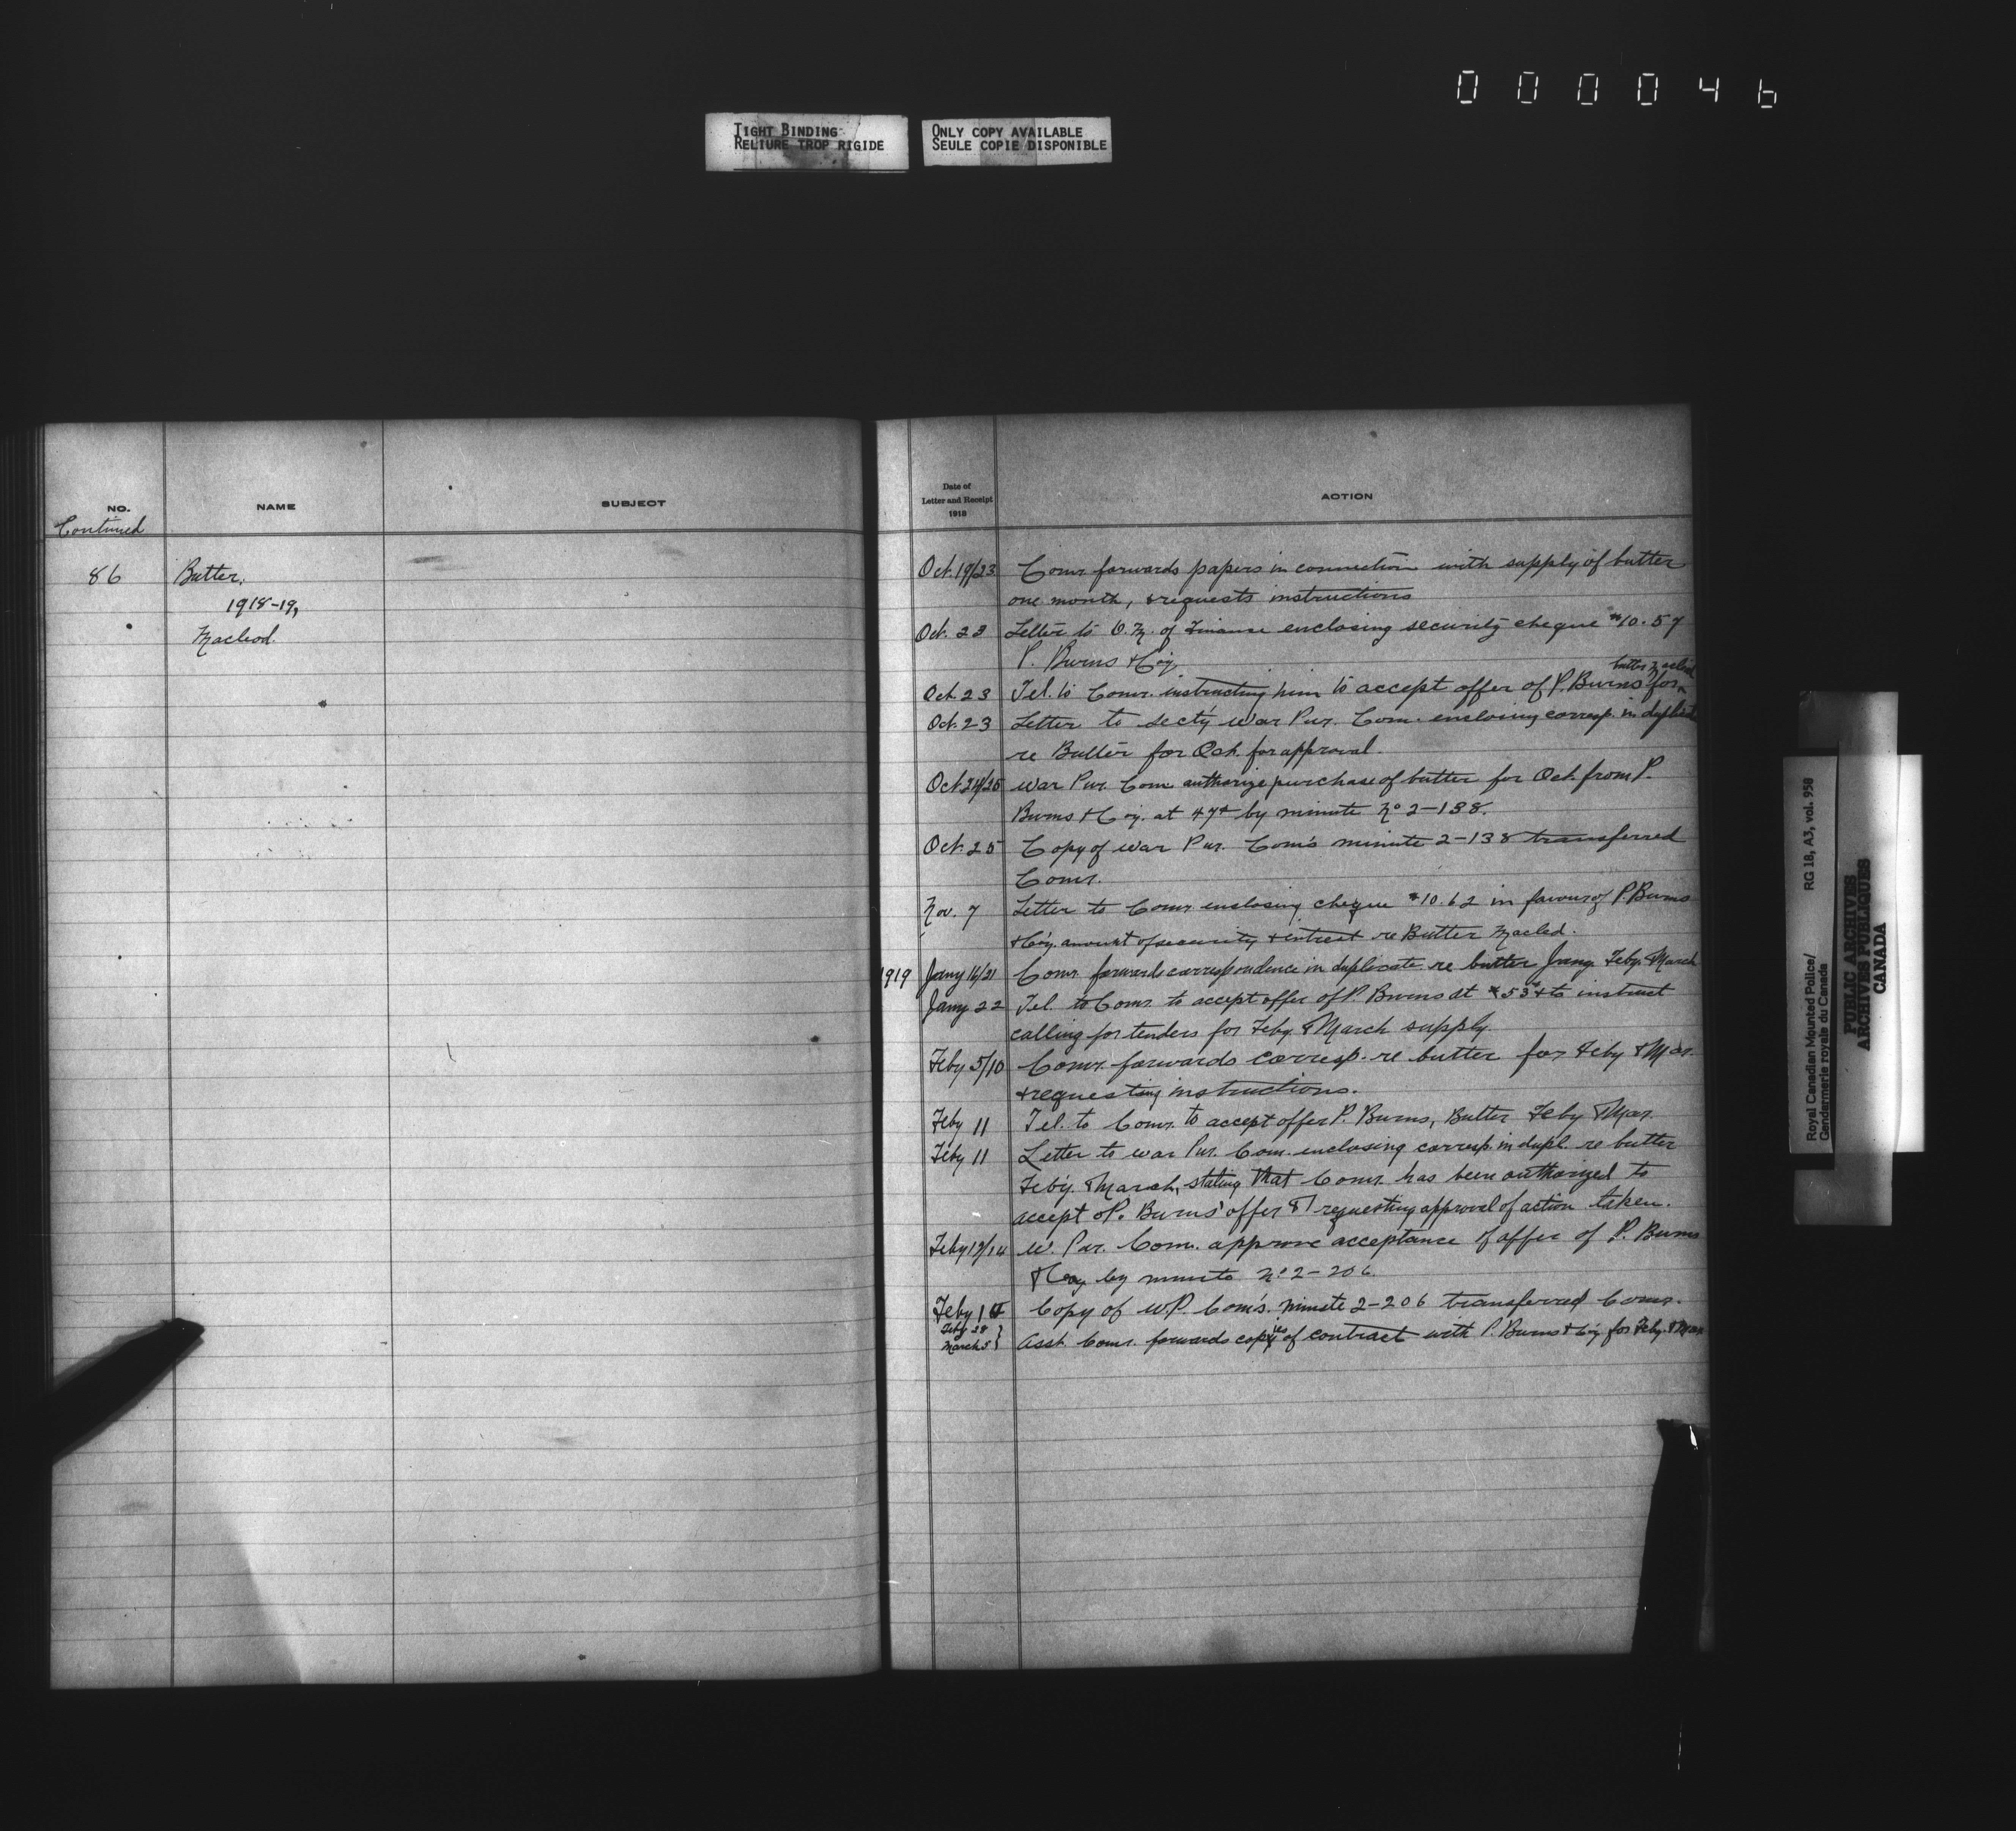 000046
TIGHT BINDING
RELIURE TROP RIGIDE
ONLY COPY AVAILABLE
SEULE COPIE DISPONIBLE
NO. NAME SUBJECT
Continued
86 Butter,
1918-19,
Macleod.
Date of
Letter and Receipt
1918
ACTION
Oct. 19/23 Comr. forwards papers in connection with supply of butter
one month, & requests instructions
Oct. 23 Letter to D.M. of Finance enclosing security cheque $10.57
P. Burns & Coy.
butter Macleod
Oct. 23 Tel. to Comr. instructing him to accept offer of P. Burns for
Oct. 23 Letter to Secty War Pur. Com. enclosing corresp. in duplicate
re Butter for Oct. for approval.
Oct. 24/25 War Pur. Com. authorize purchase of butter for Oct. from P.
Burns & Coy. at 47¢ by minute No 2-138.
Oct. 25 Copy of War Pur. Com's minute 2-138 transferred
Comr.
Nov. 7 Letter to Comr. enclosing cheque $10.62 in favour of P. Burns
& Coy. amount of security & intrest re Butter Macled.
1919 Jany 16/21 Comr. forwards correspondence in duplicate re butter Jany. Feby. & March
Jany 22 Tel. to Comr. to accept offer of P. Burns at 53¢ & to instruct
calling for tenders for Feby. & March supply.
Feby 5/10 Comr. forwards corresp. re butter for Feby & Mar.
& requesting instructions.
Feby 11 Tel. to Comr. to accept offer P. Burns, Butter Feby & Mar.
Feby 11 Letter to War Pur. Com. enclosing corresp. in dupl. re butter
Feby. & March, stating that Comr. has been authorized to
accept P. Burns' offer & requesting approval of action taken.
Feby 13/14 W. Pur. Com. approve acceptance of offer of P. Burns
& Coy by minute No 2-206.
Feby 14 Copy of W.P. Com's. minute 2-206 transferred Comr.
Feby 28
March 5 } Asst. Comr. forwards copies of contract with P. Burns & Coy for Feby. & Mar
Royal Canadian Mounted Police/
Gendarmerie royale du Canada
RG 18, A3, vol. 958
PUBLIC ARCHIVES
ARCHIVES PUBLIQUES
CANADA